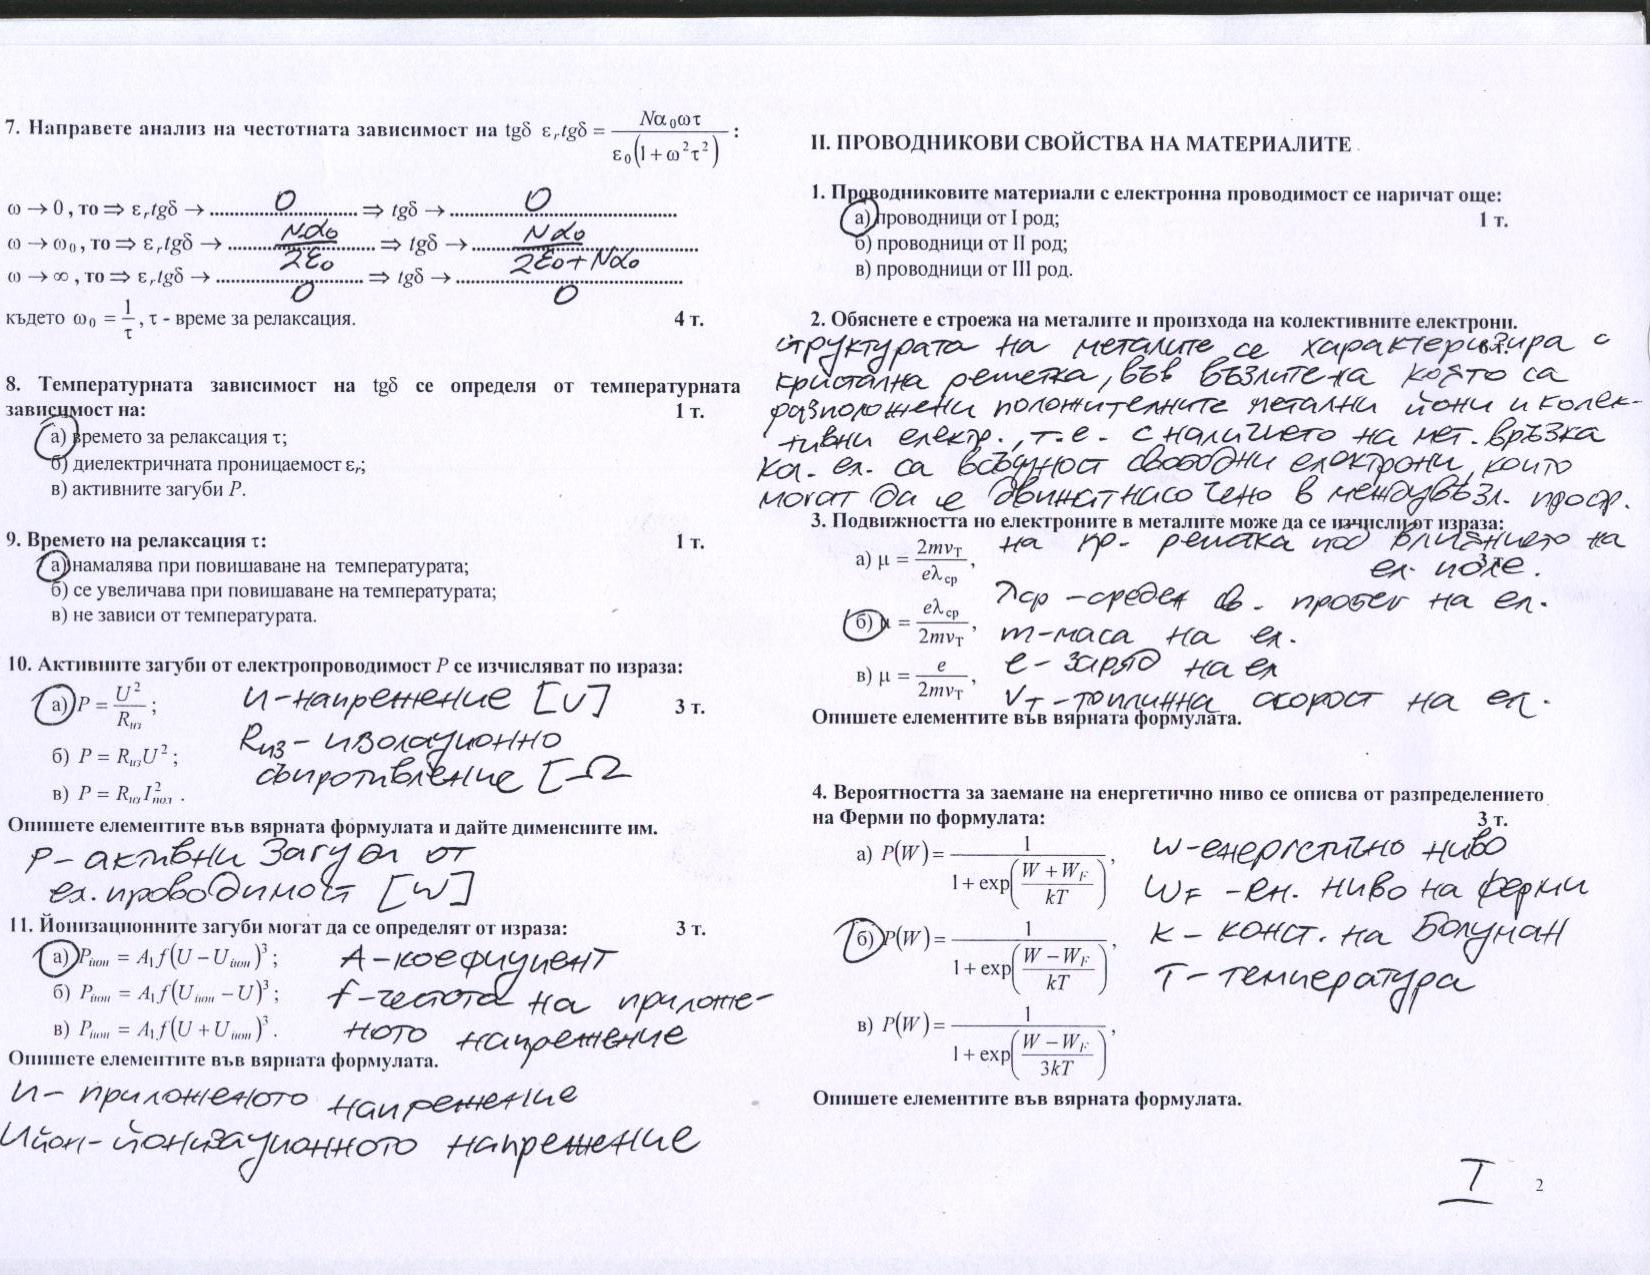 7. Направете анализ на честотната зависимост на tgδ ε_r tgδ = Nα₀ωτ / ε₀(1 + ω²τ²) :
ω → 0 , то ⇒ ε_r tgδ → ...... 0 ...... ⇒ tgδ → ...... 0 ......
ω → ω₀ , то ⇒ ε_r tgδ → ...... Nα₀ / 2ε₀ ...... ⇒ tgδ → ...... Nα₀ / 2ε₀+Nα₀ ......
ω → ∞ , то ⇒ ε_r tgδ → ...... 0 ...... ⇒ tgδ → ...... 0 ......
където ω₀ = 1/τ , τ - време за релаксация. 4 т.
8. Температурната зависимост на tgδ се определя от температурната
зависимост на: 1 т.
а) времето за релаксация τ;
б) диелектричната проницаемост ε_r;
в) активните загуби P.
9. Времето на релаксация τ: 1 т.
а) намалява при повишаване на температурата;
б) се увеличава при повишаване на температурата;
в) не зависи от температурата.
10. Активните загуби от електропроводимост P се изчисляват по израза:
а) P = U² / R_из ; U-напрежение [V] 3 т.
Rиз – изолационно
б) P = R_из U² ;
съпротивление [Ω
в) P = R_из I²_пол .
Опишете елементите във вярната формулата и дайте дименсиите им.
P – активни загуби от
ел. проводимост [W]
11. Йонизационните загуби могат да се определят от израза: 3 т.
а) P_йон = A₁f(U − U_йон)³ ; A-коефициент
б) P_йон = A₁f(U_йон − U)³ ; f-честота на приложе-
в) P_йон = A₁f(U + U_йон)³ . ното напрежение
Опишете елементите във вярната формулата.
U – приложеното напрежение
Uйон- йонизационното напрежение
II. ПРОВОДНИКОВИ СВОЙСТВА НА МАТЕРИАЛИТЕ
1. Проводниковите материали с електронна проводимост се наричат още:
а) проводници от I род; 1 т.
б) проводници от II род;
в) проводници от III род.
2. Обяснете е строежа на металите и произхода на колективните електрони.
структурата на металите се характеризира с
кристална решетка, във възлите на която са
разположени положителните метални йони и колек-
тивни електр., т.е. с наличието на мет. връзка
Кол. ел. са всъщност свободни електрони, които
могат да се движат насочено в междувъзл. простр.
3. Подвижността но електроните в металите може да се изчисли от израза:
на кр. решетка под влиянието на
ел. поле. 3 т.
а) μ = 2mv_T / eλ_ср ,
λср – среден св. пробег на ел.
б) μ = eλ_ср / 2mv_T , m-маса на ел.
в) μ = e / 2mv_T , e – заряд на ел
VT – топлинна скорост на ел.
Опишете елементите във вярната формулата.
4. Вероятността за заемане на енергетично ниво се описва от разпределението
на Ферми по формулата: 3 т.
а) P(W) = 1 / 1 + exp((W + W_F) / kT) , W-енергетично ниво
WF – ен. ниво на ферми
б) P(W) = 1 / 1 + exp((W − W_F) / kT) , K – конст. на Болцман
T – температура
в) P(W) = 1 / 1 + exp((W − W_F) / 3kT) ,
Опишете елементите във вярната формулата.
I
2